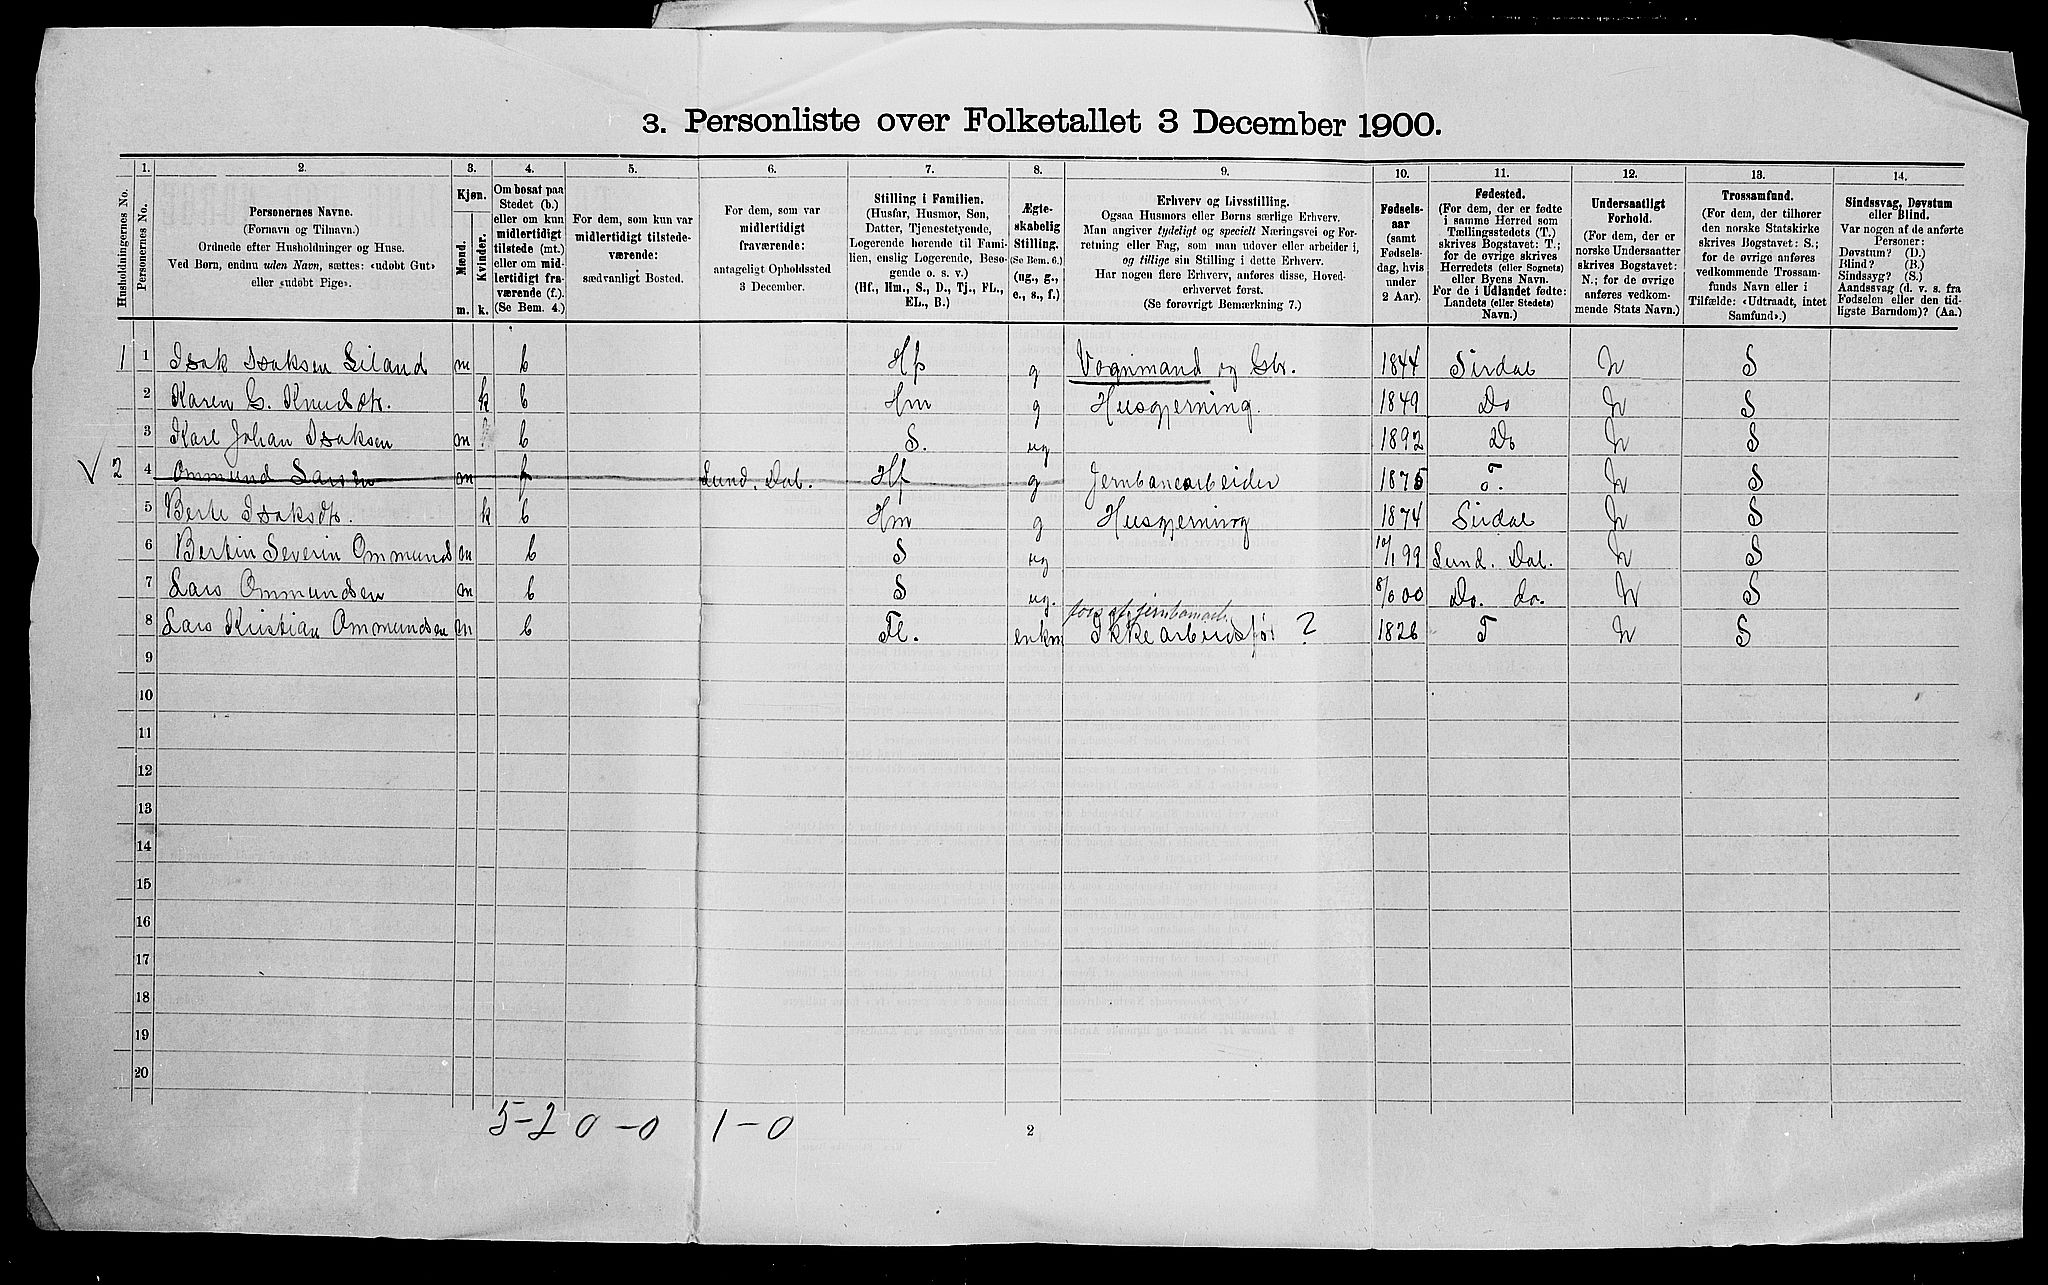 3. Personliste over Folketallet 3 December 1900.
Husholdningernes No.
1.
Personernes No.
2.
Personernes Navne.
(Fornavn og Tilnavn.)
Ordnede efter Husholdninger og Huse.
Ved Børn, endnu uden Navn, sættes: «udøbt Gut»
eller «udøbt Pige».
3.
Kjøn.
Mænd.
Kvinder.
m.
k.
4.
Om bosat paa
Stedet (b.)
eller om kun
midlertidigt
tilstede (mt.)
eller om mid-
lertidigt fra-
værende (f.).
(Se Bem. 4.)
5.
For dem, som kun var
midlertidigt tilstede-
værende:
sædvanligt Bosted.
6.
For dem, som var
midlertidigt
fraværende:
antageligt Opholdssted
3 December.
7.
Stilling i Familien.
(Husfar, Husmor, Søn,
Datter, Tjenestetyende,
Logerende hørende til Fami-
lien, enslig Logerende, Besø-
gende o. s. v.)
(Hf., Hm., S., D., Tj., FL.,
EL., B.)
8.
Ægte-
skabelig
Stilling.
(Se Bem. 6.)
(ug., g.,
e., s., f.)
9.
Erhverv og Livsstilling.
Ogsaa Husmors eller Børns særlige Erhverv.
Man angiver tydeligt og specielt Næringsvei og For-
retning eller Fag, som man udover eller arbeider i,
og tillige sin Stilling i dette Erhverv.
Har nogen flere Erhverv, anføres disse, Hoved-
erhvervet først.
(Se forøvrigt Bemærkning 7.)
10.
Fødsels-
aar
(samt
Fødsels-
dag, hvis
under
2 Aar).
11.
Fødested.
(For dem, der er fødte
i samme Herred som
Tællingsstedets (T.)
skrives Bogstavet: T.;
for de øvrige skrives
Herredets (eller Sognets)
eller Byens Navn.
For de i Udlandet fødte:
Landets (eller Stedets)
Navn.)
12.
Undersaatligt
Forhold.
(For dem, der er
norske Undersaatter
skrives Bogstavet:
N.; for de øvrige
anføres vedkom-
mende Stats Navn.)
13.
Trossamfund.
(For dem, der tilhører
den norske Statskirke
skrives Bogstavet: S.;
for de øvrige anføres
vedkommende Trossam-
funds Navn eller i
Tilfælde: «Udtraadt, intet
Samfund».)
14.
Sindssvag, Døvstum
eller Blind.
Var nogen af de anførte
Personer:
Døvstum? (D.)
Blind? (B.)
Sindssyg? (S.)
Aandssvag (d. v. s. fra
Fødselen eller den tid-
ligste Barndom)? (Aa.)
1 1 Isak Isaksen Liland m b Hf g Vognmand og Gbr. 1844 Sirdal N S
2 Karen G. Knudsdtr. k b Hm g Husgjerning. 1849 Do N S
3 Karl Johan Isaksen m b S. ug 1892 Do N S
√ 2 4 Ommund Larsen m f Lund. Dal. Hf g Jernbanearbeider 1875 T. N S
5 Berte Isaksdtr. k b Hm g Husgjerning 1874 Sirdal N S
6 Bertin Severin Ommunds m b S ug 10/1 99 Lund. Dal. N S
7 Lars Ommundsen m b S ug. 8/6 00 Do. do. N S
8 Lars Kristian Ommundsen m b Fl. enkm Ikke arbeidsfør ? 1826 T N S
9
10
11
12
13
14
15
16
17
18
19
20
5-2 0-0 1-0
2